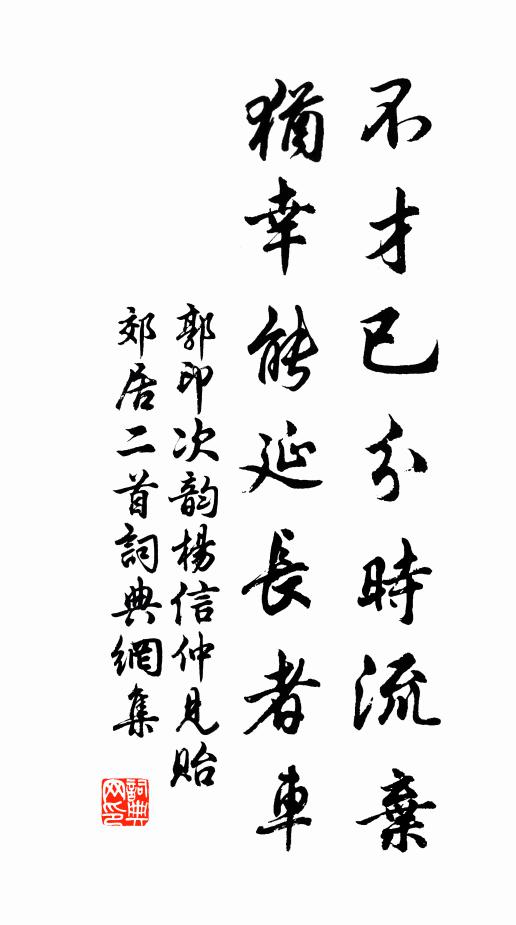 不才已分時流棄
猶幸能延長者車
郭印次韵楊信仲見貽
郊居二首詞典網集
詞典网印